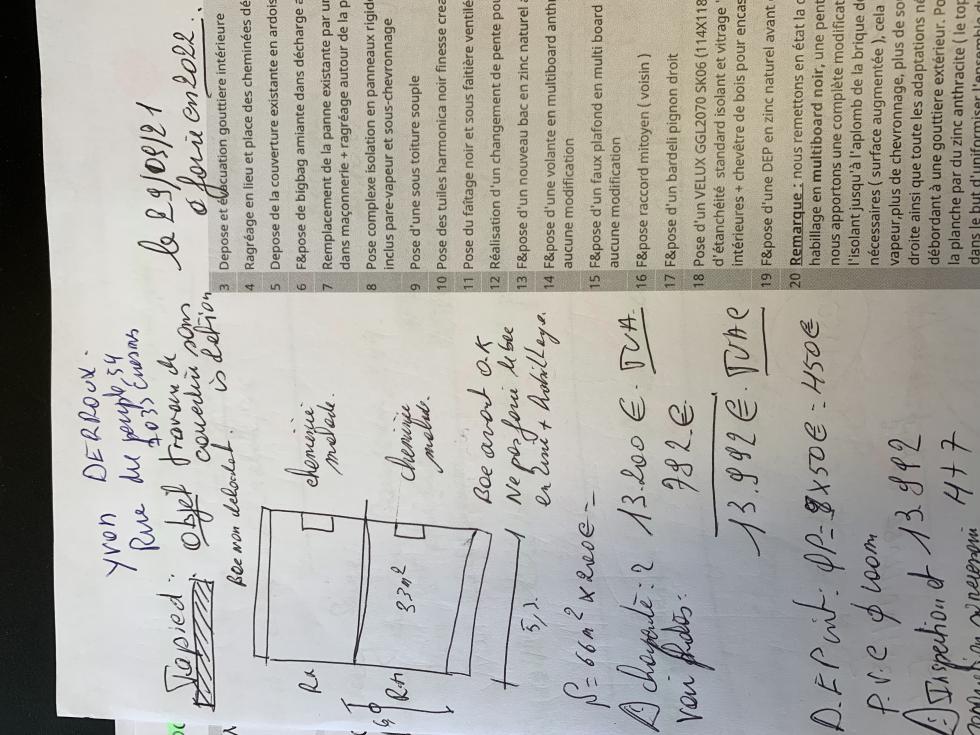 YVON DERROUX.
Rue du peuple 54
7033 Cuesmes
le 29/09/21
à fournir en 2022.
Tapied:
objet travaux de
couverture sans
isolation
Bac non
cheminée
cheminée
33m²
5,
Bac avant O.K
Ne pas faire
en zinc + habillage.
S = 66m² x 200€ =
charpente: 2 13.200 €. TVA.
voir photos: 792 €.
13.992 €. TVAC
D.EP int. PP- 9 x 50€ = 450€
P.V.C ϕ 100m
Inspection d 13.992
4+7
3 Depose et évacuation gouttiere intérieure
4 Ragréage en lieu et place des cheminées dé
5 Depose de la couverture existante en ardois
6 F&pose de bigbag amiante dans décharge a
7 Remplacement de la panne existante par un
dans maçonnerie + ragréage autour de la p
8 Pose complexe isolation en panneaux rigide
inclus pare-vapeur et sous-chevronnage
9 Pose d'une sous toiture souple
10 Pose des tuiles harmonica noir finesse crea
11 Pose du faîtage noir et sous faitière ventilé
12 Réalisation d'un changement de pente pou
13 F&pose d'un nouveau bac en zinc naturel a
14 F&pose d'une volante en multiboard anthr
aucune modification
15 F&pose d'un faux plafond en multi board
aucune modification
16 F&pose raccord mitoyen ( voisin )
17 F&pose d'un bardeli pignon droit
18 Pose d'un VELUX GGL2070 SK06 (114X118
d'étanchéité standard isolant et vitrage
intérieures + chevêtre de bois pour encas
19 F&pose d'une DEP en zinc naturel avant
20 Remarque : nous remettons en état la c
habillage en multiboard noir, une pent
nous apportons une complète modificat
l'isolant jusqu'à l'aplomb de la brique de
nécessaires ( surface augmentée ), cela
vapeur,plus de chevronnage, plus de sou
droite ainsi que toute les adaptations né
débordant à une gouttiere extérieur. Po
la planche par du zinc anthracite ( le top
dans le but d'uniformiser l'ensemble du